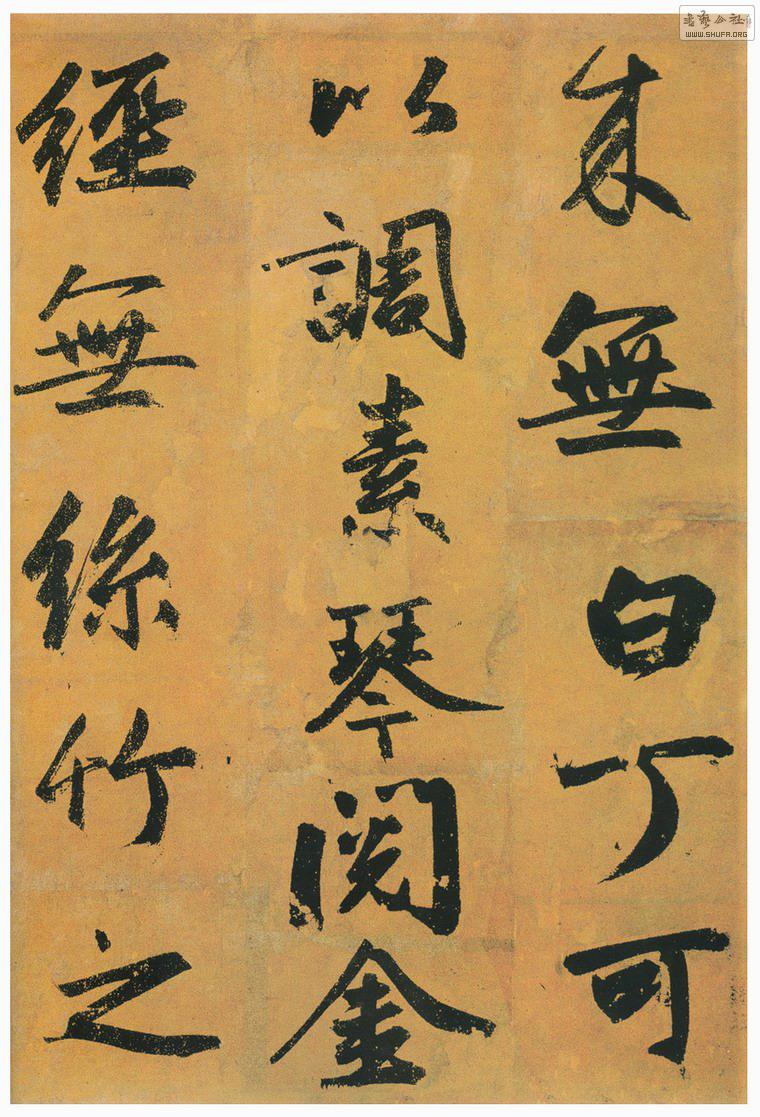 來無白丁可
以調素琴閱金
經無絲竹之
書藝公社
WWW.SHUFA.ORG